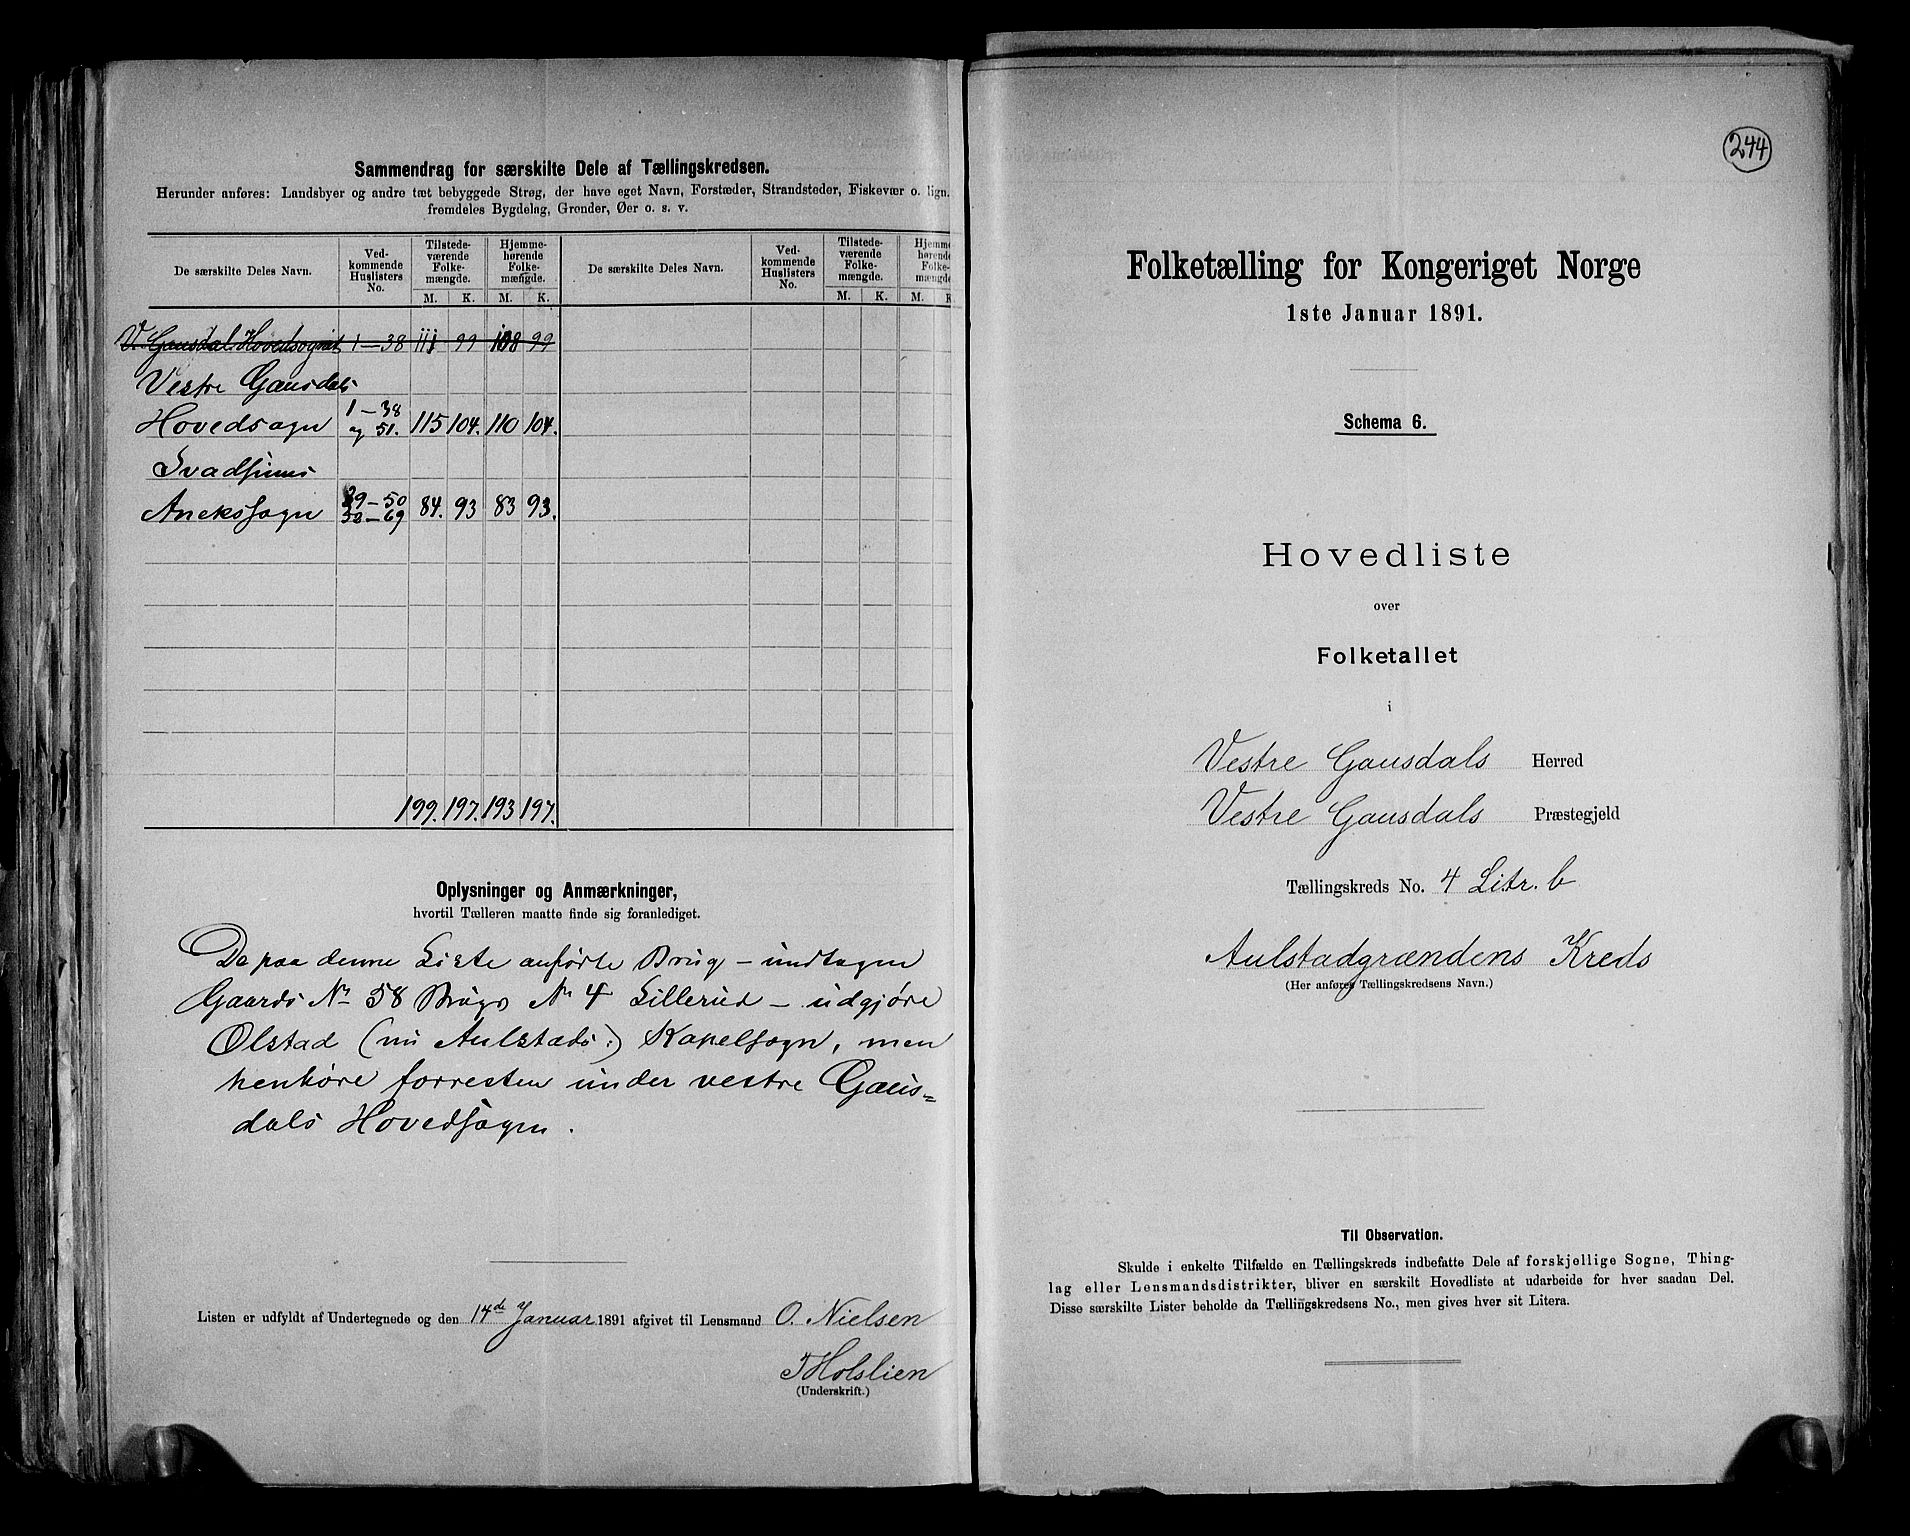 Sammendrag for særskilte Dele af Tællingskredsen.
Herunder anføres: Landsbyer og andre tæt bebyggede Strøg, der have eget Navn, Forstæder, Strandsteder, Fiskevær o. lign.
fremdeles Bygdelag, Grender, Øer o. s. v.
De særskilte Deles Navn. Ved-kommende Huslisters No. Tilstede-værende Folke-mængde. Hjemme-hørende Folke-mængde. De særskilte Deles Navn. Ved-kommende Huslisters No. Tilstede-værende Folke-mængde. Hjemm hørende Folke-mængde
M. K. M. K. M. K. M. K
V. Gausdal Hovedsogn 1-38 111 99 108 99
Vestre Gausdals
Hovedsogn 1-38 og 51. 115 104. 110 104.
Svadsums
Anekssogn 39-50 52-69 84. 93 83 93.
199. 197. 193 197.
Oplysninger og Anmærkninger,
hvortil Tælleren maatte finde sig foranlediget.
De paa denne Liste anførte Brug - undtagen
Gaards No 58 Brugs No 4 Lillerud - udgjøre
Ølstad (nu Aulstads:) Kapelsogn, men
henhøre forresten under vestre Gaus=
dals Hovedsogn.
Listen er udfyldt af Undertegnede og den 14de Januar 1891 afgivet til Lensmand O. Nielsen
T Holslien
(Underskrift.)
244
Folketælling for Kongeriget Norge
1ste Januar 1891.
Schema 6.
Hovedliste
over
Folketallet
i
Vestre Gausdals Herred
Vestre Gausdals Præstegjeld
Tællingskreds No. 4 Litr. b
Aulstadgrændens Kreds
(Her anføres Tællingskredsens Navn.)
Til Observation.
Skulde i enkelte Tilfælde en Tællingskreds indbefatte Dele af forskjellige Sogne, Thing-
lag eller Lensmandsdistrikter, bliver en særskilt Hovedliste at udarbeide for hver saadan Del.
Disse særskilte Lister beholde da Tællingskredsens No., men gives hver sit Litera.